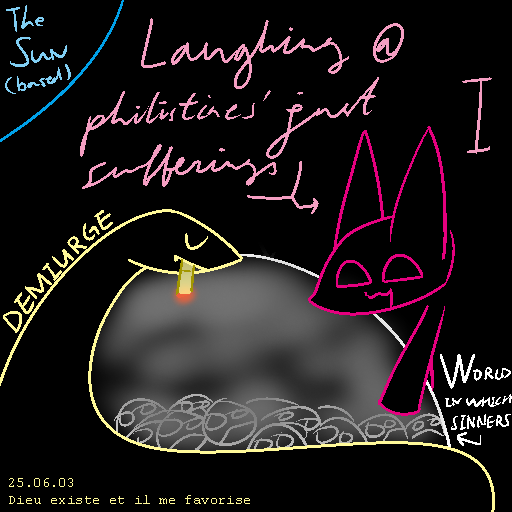 The
Sun
(based)
Laughing @
philistines' just
sufferings
I
DEMIURGE
World
in which
sinners
25.06.03
Dieu existe et il me favorise